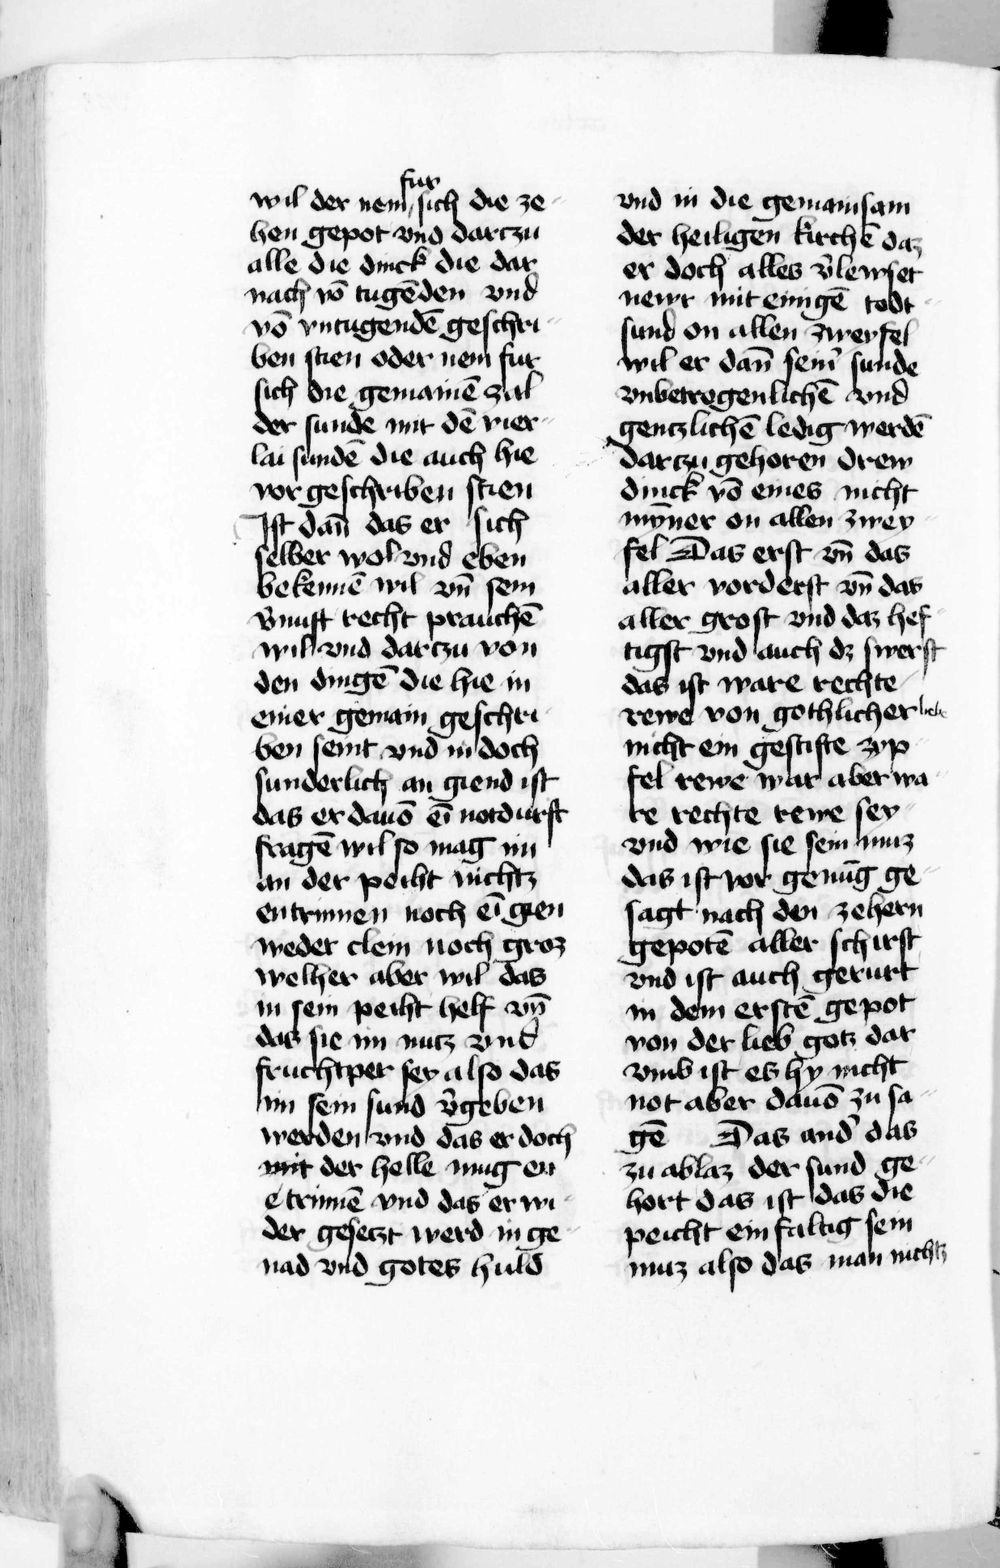 wil der nem fur sich die ze-
hen gepot vnd darczu
alle die dinck die dar
nach vō tugēden vnd
vō vntugendē geschri-
ben stien oder nem fur
sich die gemainē zal
der sunde mit dē vier-
lai sundē die auch hie
vor geschriben stien
Ist dañ das er sich
selber wol vnd eben
bekennē wil vñ sein
v̄nuft recht prauchē
wil vnd darczu von
den dingē die hie in
einer gemain geschri-
ben seint vnd in doch
sunderlich an giend ist
das er dauō eī notdurft
fragē wil so mag im
an der peiht nichtz
entrinnen noch eī gien
weder clein noch groz
welher aber wil das
in sein peiht helf vñ
das sie im nutz vnd
fruchtper sey also das
im sein sund v̄geben
werden vnd das er doch
mit der helle mug en
etrinnē vnd das er wi-
der gesetzt werd in ge-
nad vnd gotes huld
vnd in die gemainsam
der heiligen kirchē daz
er doch alles v̄lewset
newr mit einigē todt-
sund on allen zweyfel
wil er dañ sein' sunde
vnbetrogenlichē vnd
genczlichē ledig werdē
darczu gehoren drew
dinck vō eines nicht
myner on allen zwey-
fel Das erst vñ das
aller vorderst vñ das
aller grost vnd daz hef-
tigst vnd auch dz swerst
das ist ware rechte
rewe von gothlicher liebe
nicht ein gestifte zyp-
fel rewe war aber wa-
re rechte rewe sey-
vnd wie sie sein muz
das ist vor genūg ge-
sagt nach den zehern
gepotē aller schirst
vnd ist auch gerurt
in dem erstē gepot
von der lieb gotz dar
vmb ist es hy nicht
not aber dauō zu sa-
gē Das and' das
zu ablaz der sund ge-
hort das ist das die
peicht einfaltig sein
muz also das man nichtz